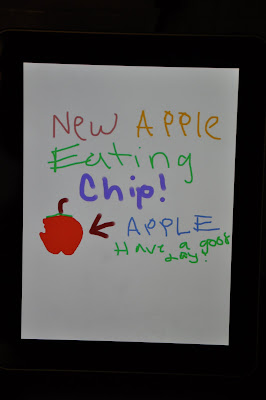 New APPLE
Eating
Chip!
APPLE
Have a good
day!